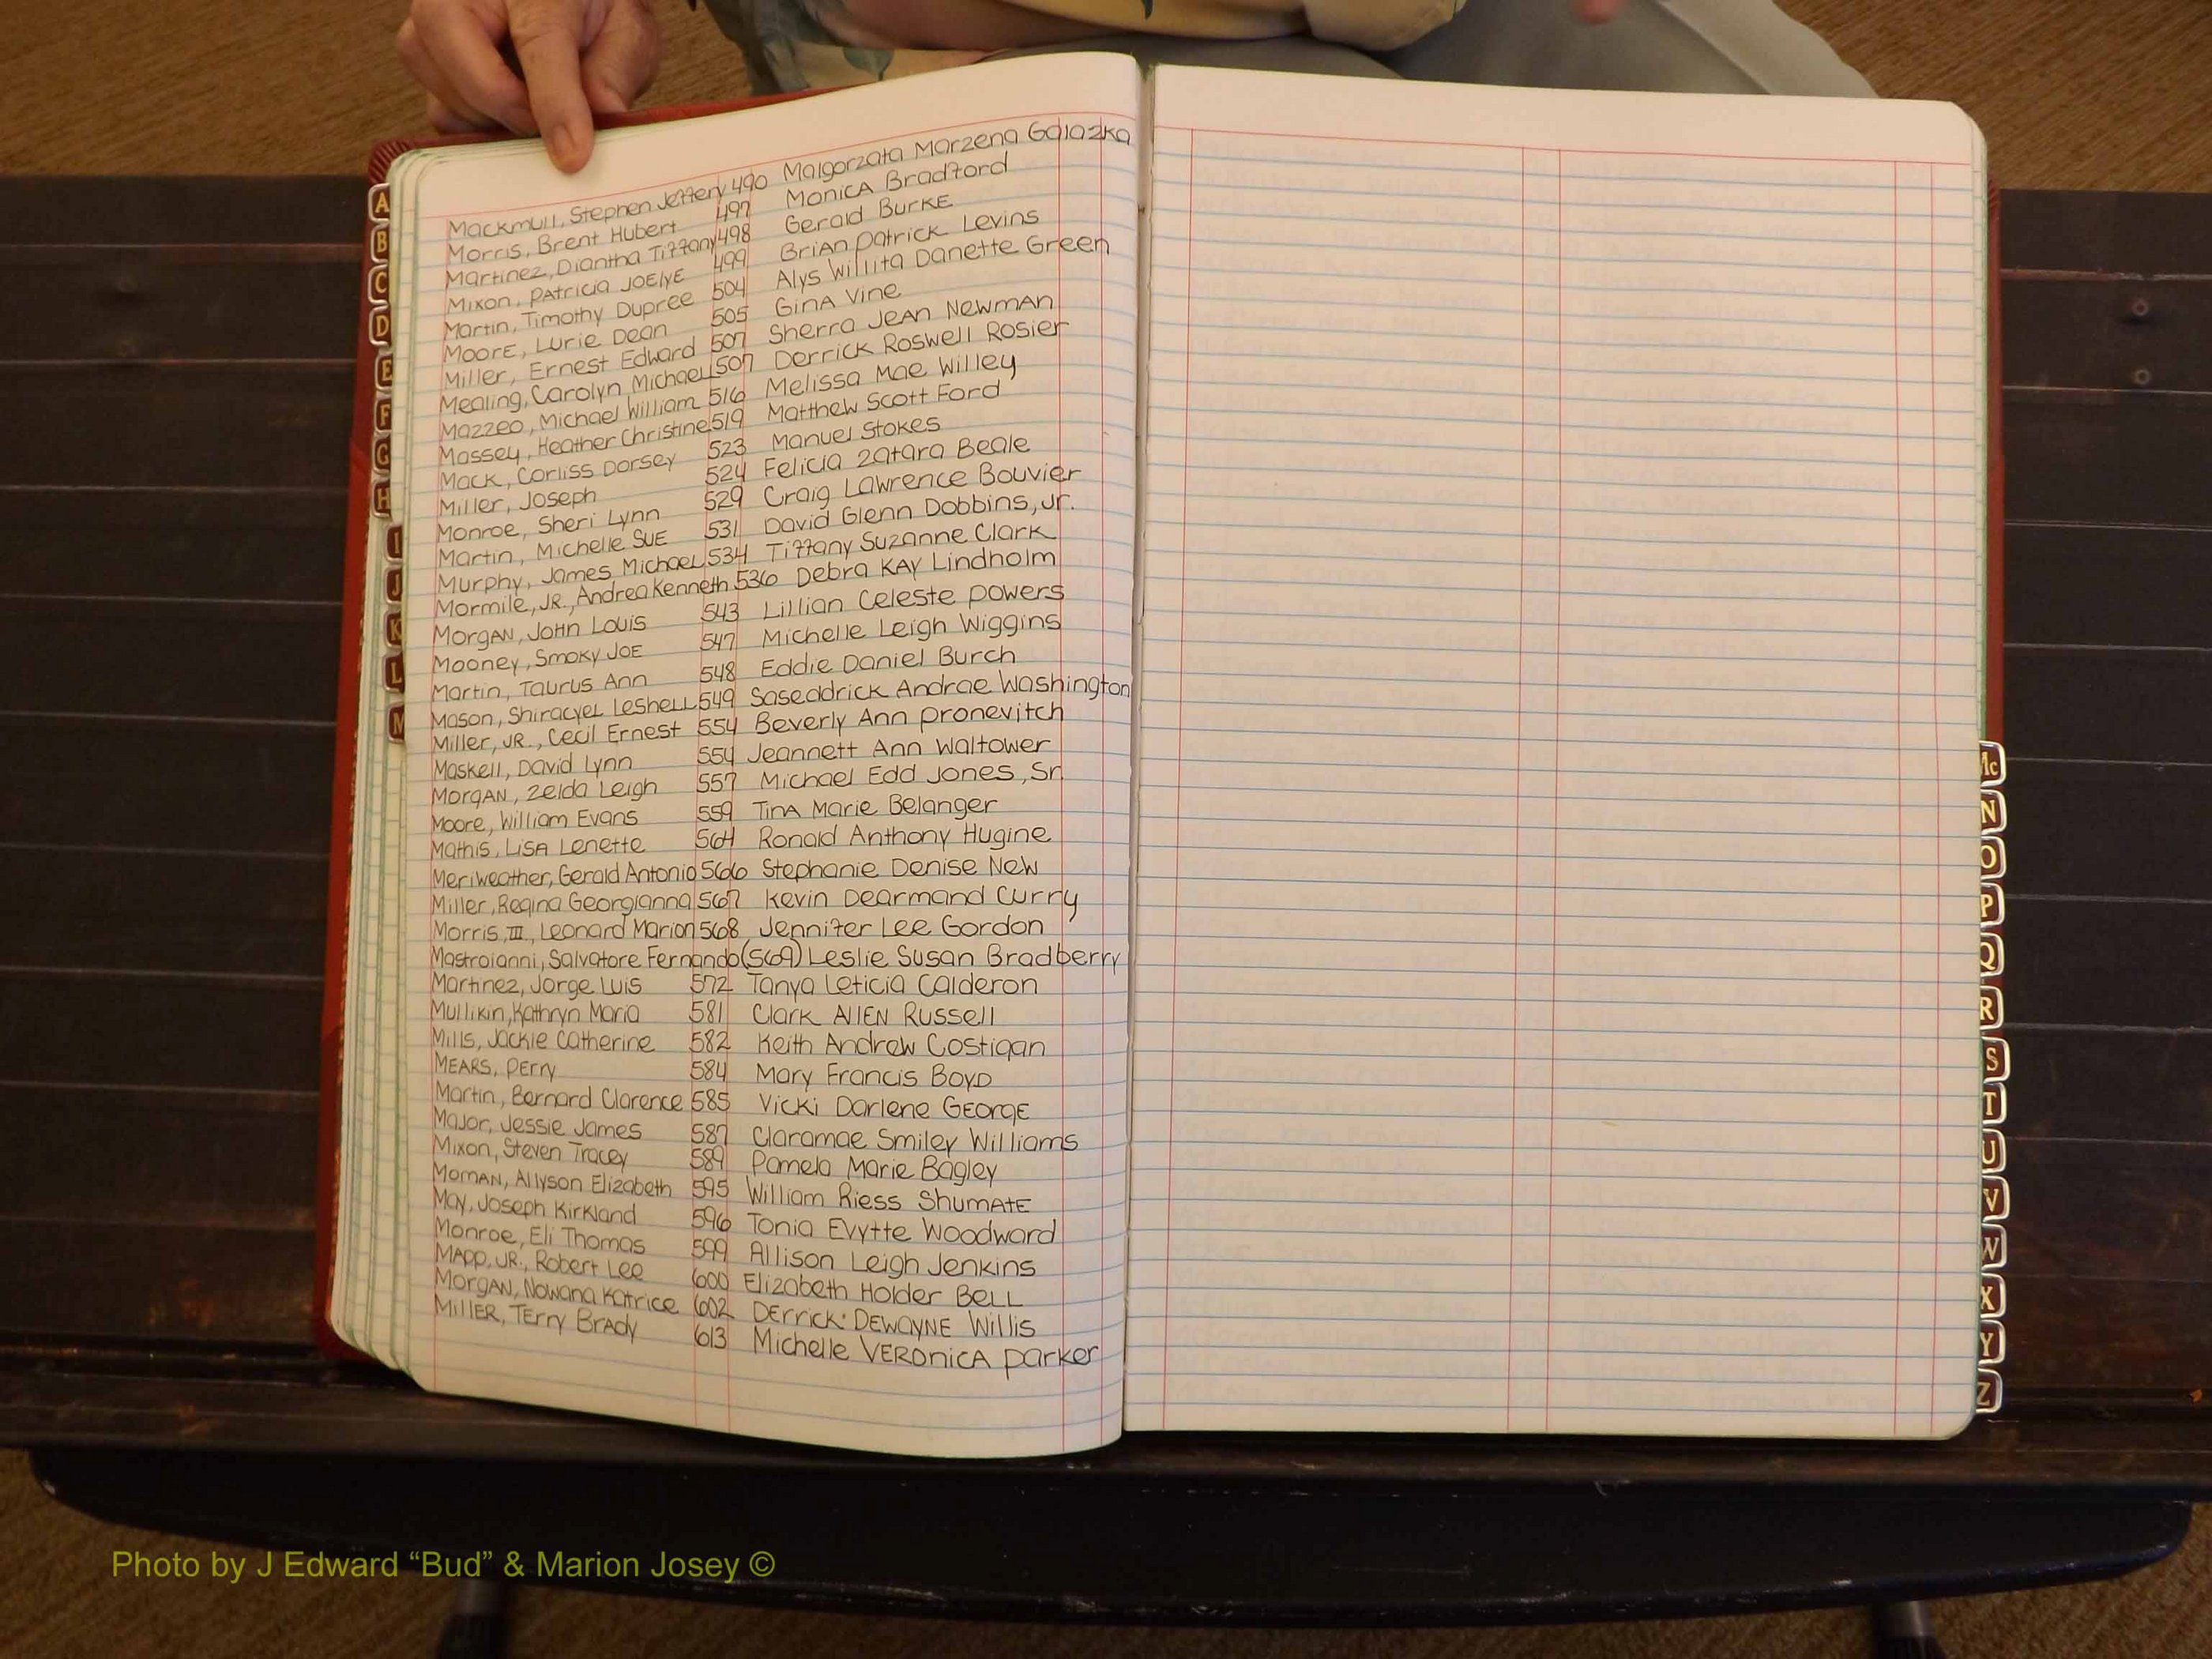 Mackmull, Stephen Jeffery 490 Malgorzata Marzena Galazka
Morris, Brent Hubert 497 Monica Bradford
Martinez, Diantha Tiffany 498 Gerald Burke
Mixon, Patricia Joelye 499 Brian Patrick Levins
Martin, Timothy Dupree 504 Alys Willita Danette Green
Moore, Lurie Dean 505 Gina Vine
Miller, Ernest Edward 507 Sherra Jean Newman
Mealing, Carolyn Michaell 507 Derrick Roswell Rosier
Mazzeo, Michael William 516 Melissa Mae Willey
Massey, Heather Christine 519 Matthew Scott Ford
Mack, Corliss Dorsey 523 Manuel Stokes
Miller, Joseph 524 Felicia Zatara Beale
Monroe, Sheri Lynn 529 Craig Lawrence Bouvier
Martin, Michelle Sue 531 David Glenn Dobbins, Jr.
Murphy, James Michael 534 Tiffany Suzanne Clark
Mormile, JR., Andrea Kenneth 536 Debra Kay Lindholm
Morgan, John Louis 543 Lillian Celeste Powers
Mooney, Smoky Joe 547 Michelle Leigh Wiggins
Martin, Taurus Ann 548 Eddie Daniel Burch
Mason, Shiracyel Leshell 549 Saseddrick Andrae Washington
Miller, JR., Cecil Ernest 554 Beverly Ann Pronevitch
Maskell, David Lynn 554 Jeannett Ann Waltower
Morgan, Zelda Leigh 557 Michael Edd Jones, Sr.
Moore, William Evans 559 Tina Marie Belanger
Mathis, Lisa Lenette 564 Ronald Anthony Hugine
Meriweather, Gerald Antonio 566 Stephanie Denise New
Miller, Regina Georgianna 567 Kevin Dearmand Curry
Morris, III., Leonard Marion 568 Jennifer Lee Gordon
Mastroianni, Salvatore Fernando (569) Leslie Susan Bradberry
Martinez, Jorge Luis 572 Tanya Leticia Calderon
Mullikin, Kathryn Maria 581 Clark Allen Russell
Mills, Jackie Catherine 582 Keith Andrew Costigan
Mears, Perry 584 Mary Francis Boyd
Martin, Bernard Clarence 585 Vicki Darlene George
Major, Jessie James 587 Claramae Smiley Williams
Mixon, Steven Tracey 589 Pamela Marie Bagley
Moman, Allyson Elizabeth 595 William Riess Shumate
May, Joseph Kirkland 596 Tonia Evytte Woodward
Monroe, Eli Thomas 599 Allison Leigh Jenkins
Mapp, JR., Robert Lee 600 Elizabeth Holder Bell
Morgan, Nowana Katrice 602 Derrick Dewayne Willis
Miller, Terry Brady 613 Michelle Veronica Parker
A
B
C
D
E
F
G
H
I
J
K
L
M
Mc
N
O
P
Q
R
S
T
U
V
W
X
Y
Z
Photo by J Edward “Bud” & Marion Josey ©